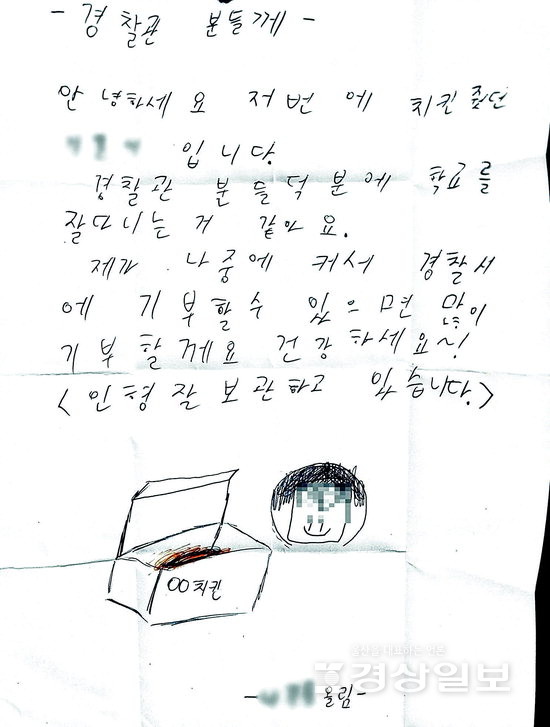 - 경찰관 분들께 -
안녕하세요 저번에 치킨줬던
입니다.
경찰관 분들덕분에 학교를
잘다니는거 같아요.
제가 나중에 커서 경찰서
에 기부할수 있으면 많이
기부할께요 건강하세요~!
<인형잘보관하고 있습니다>
OO치킨
경상일보
- 올림-